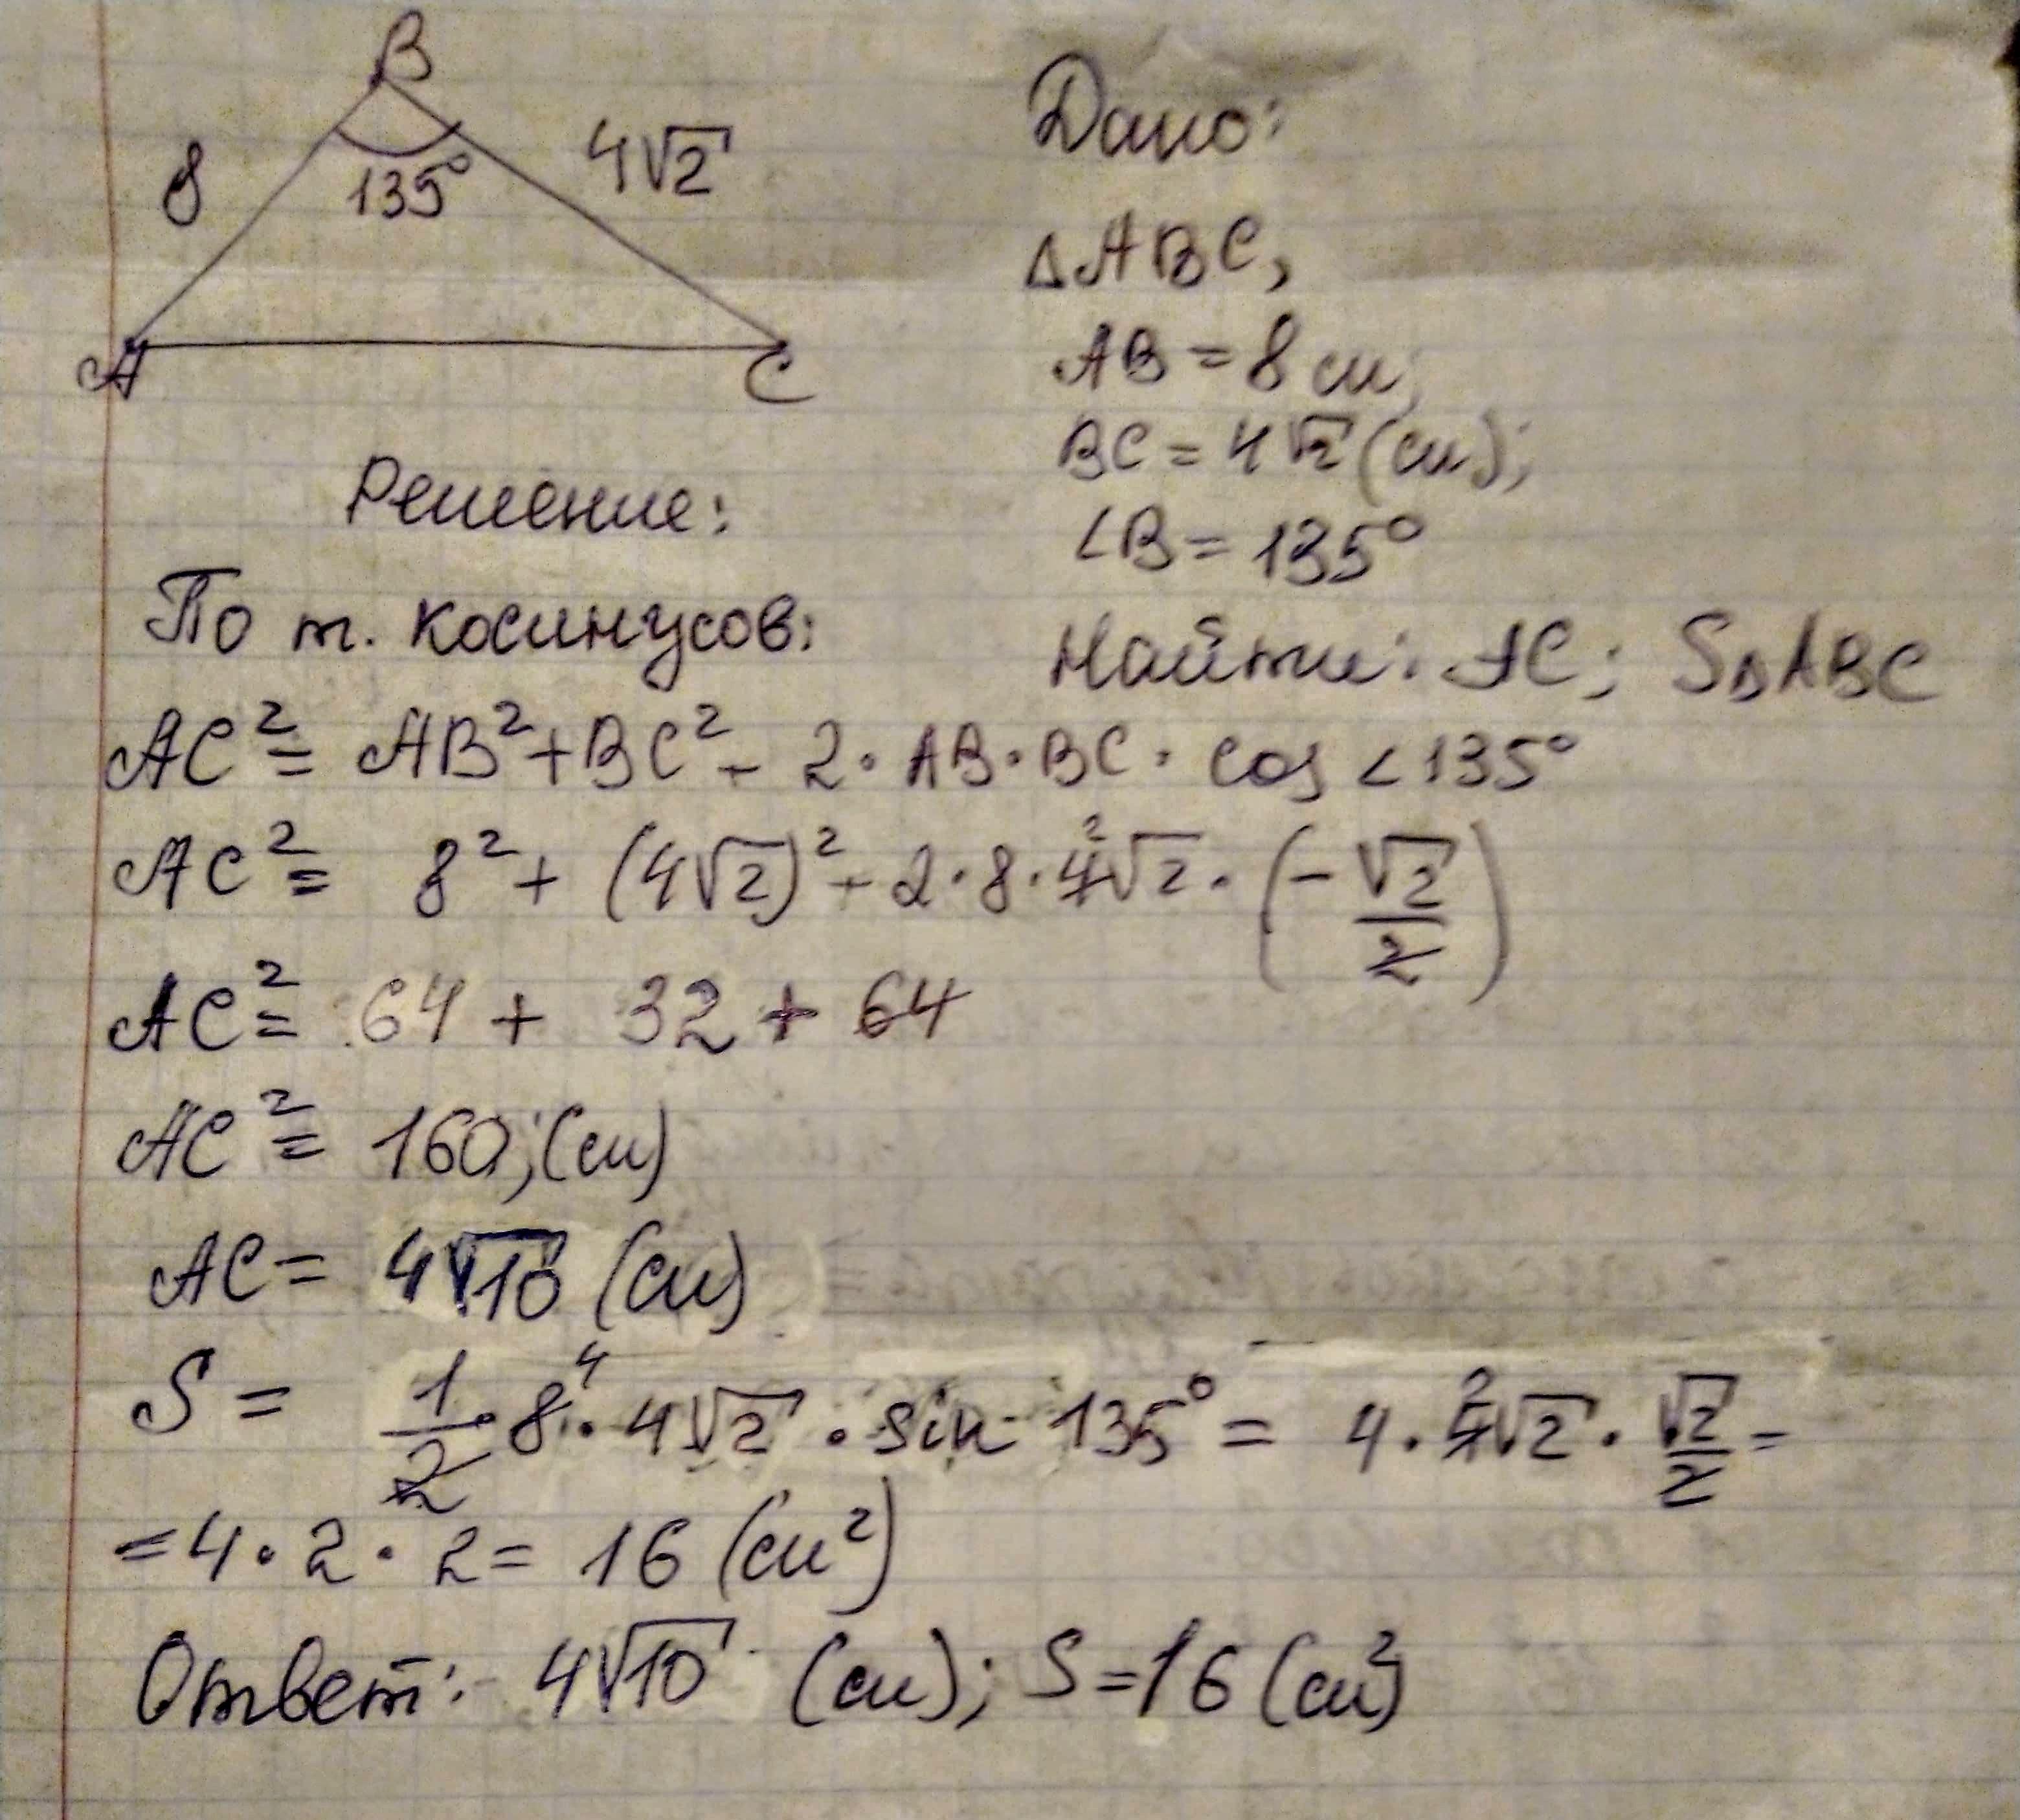 B
8
135°
4√2
A
C
Дано:
△ABC,
AB = 8 см;
BC = 4√2 (см);
∠B = 135°
Найти: AC; S△ABC
Решение:
По т. косинусов:
AC² = AB² + BC² - 2 · AB · BC · cos ∠135°
AC² = 8² + (4√2)² - 2 · 8 · 4² √2 · (-√2/2)
AC² = 64 + 32 + 64
AC² = 160; (см)
AC = 4√10 (см)
S = 1/2 · 8⁴ · 4√2 · sin 135° = 4 · 4² √2 · √2/2 =
= 4 · 2 · 2 = 16 (см²)
Ответ: 4√10 (см); S = 16 (см²)